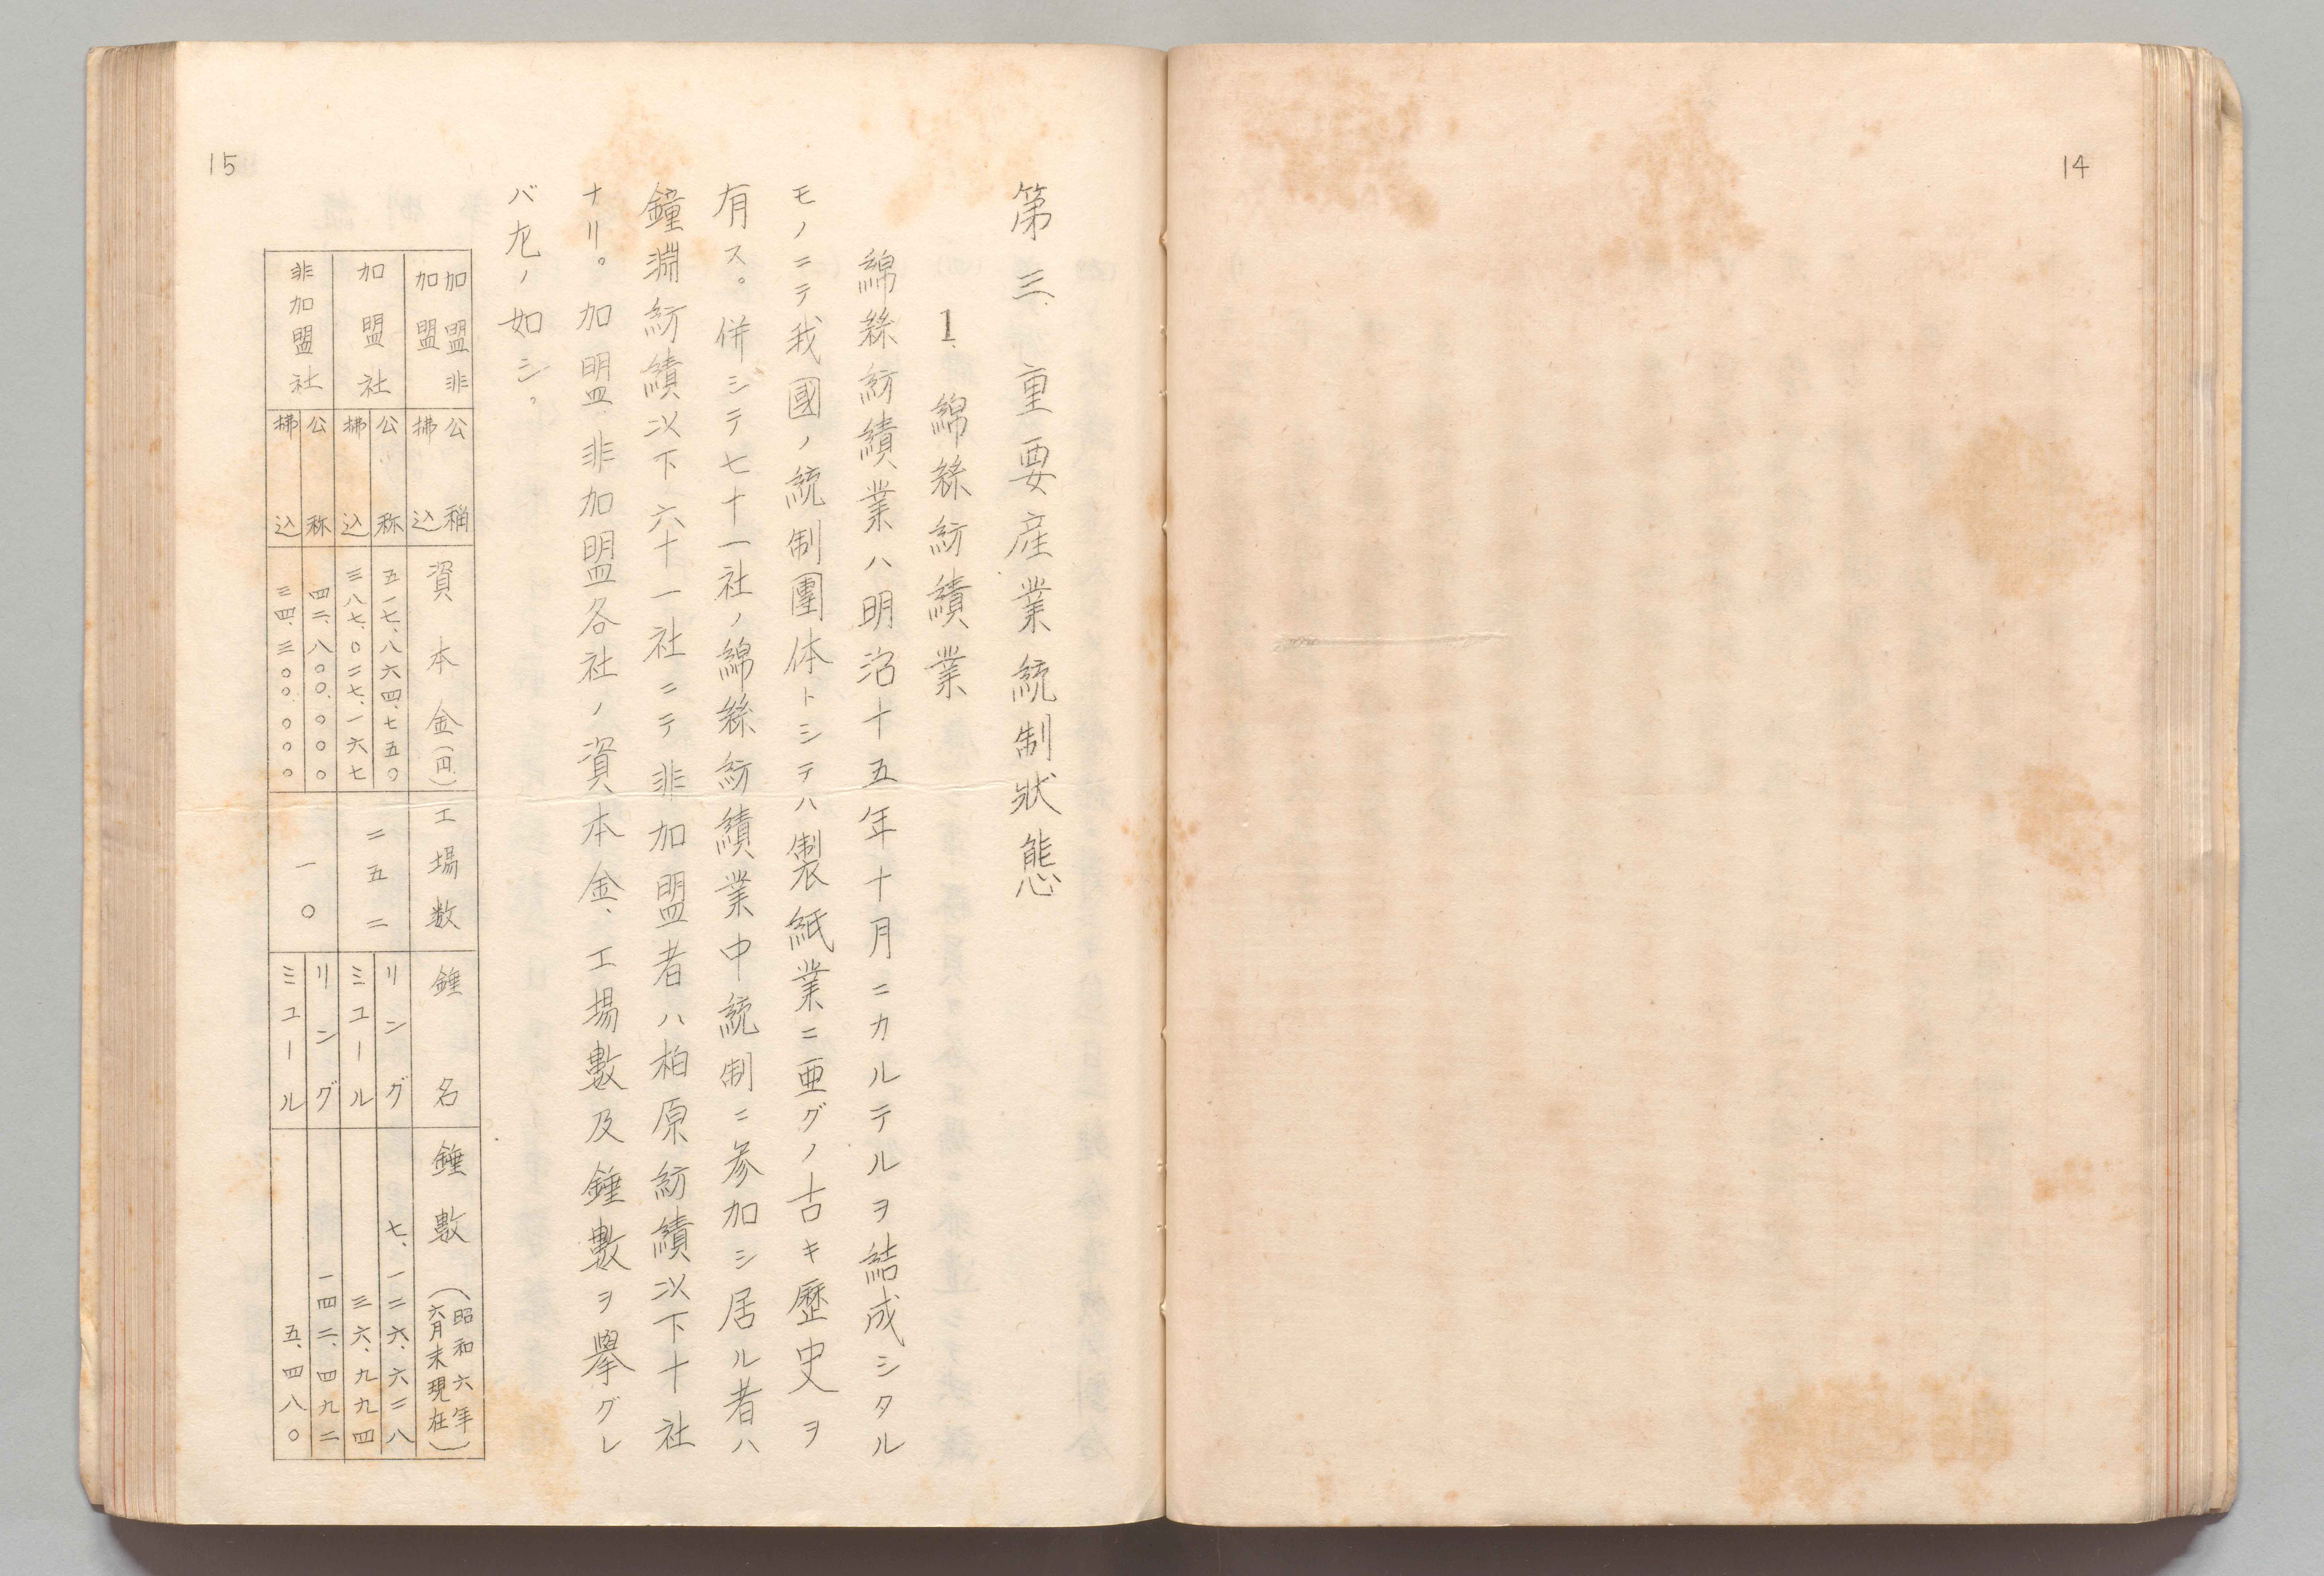 14
第三、重要産業統制狀態
1. 綿絲紡績業
綿絲紡績業ハ明治十五年十月ニカルテルヲ結成シタル
モノニテ我國ノ統制團体トシテハ製紙業ニ亜グノ古キ歷史ヲ
有ス。併シテ七十一社ノ綿絲紡績業中統制ニ参加シ居ル者ハ
鐘淵紡績以下六十一社ニテ非加盟者ハ柏原紡績以下十社
ナリ。加盟、非加盟各社ノ資本金、工場數及錘數ヲ擧グレ
バ左ノ如シ。
加盟非加盟 公稱 拂込 資本金(円) 工場数 錘名 錘數(昭和六年六月末現在)
加盟社 公称 五一七、八六四、七五〇 二五二 リング 七、一二六、六二八
拂込 三八七、〇二七、一六七 ミユール 三六、九九四
非加盟社 公称 四二、八〇〇、〇〇〇 一〇 リング 一四二、四九二
拂込 三四、三〇〇、〇〇〇 ミユール 五、四八〇
15